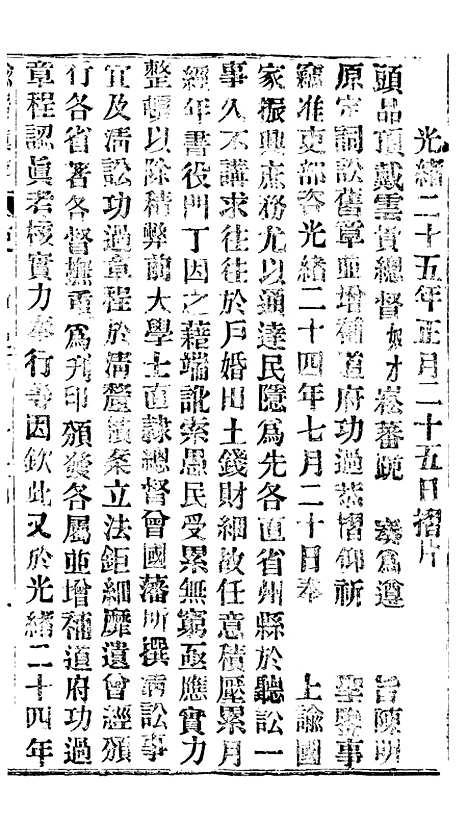 光緒二十五年正月二十五日摺片
頭品頂戴雲貴總督奴才崧蕃跪 奏為遵 旨陳明
原定詞訟舊章並增補道府功過恭摺仰祈 聖鑒事
竊准吏部咨光緒二十四年七月二十日奉 上諭國
家振興庶務尤以通達民隱為先各直省州縣於聽訟一
事久不講求往往於戶婚田土錢財細故任意積壓累月
經年書役門丁因之藉端訛索愚民受累無窮亟應實力
整頓以除積弊前大學士直隸總督曾國藩所撰清訟事
宜及清訟功過章程於清釐積案立法鉅細靡遺曾經頒
行各省著各督撫重為刋印頒發各屬並增補道府功過
章程認眞考核實力奉行等因欽此又於光緒二十四年